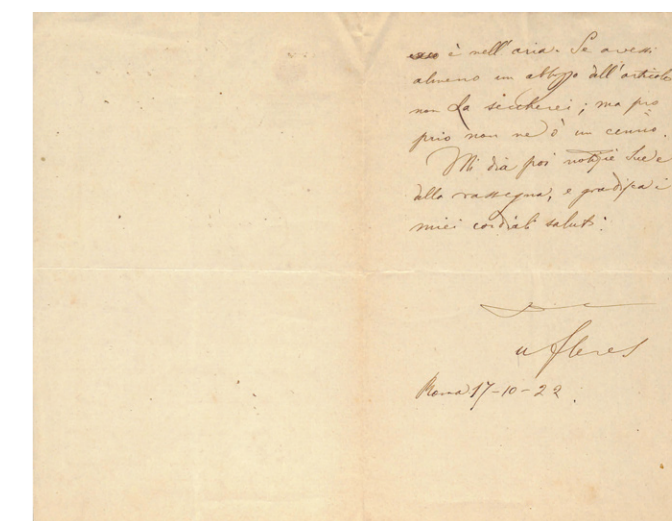 è nell'aria. Se avessi
almeno un abbozzo dell'articolo
non La seccherei; ma pro
prio non ne ò un cenno.
Mi dia poi notizie Sue e
della rassegna, e gradisca i
miei cordiali saluti.
U Fleres
Roma 17-10-22.